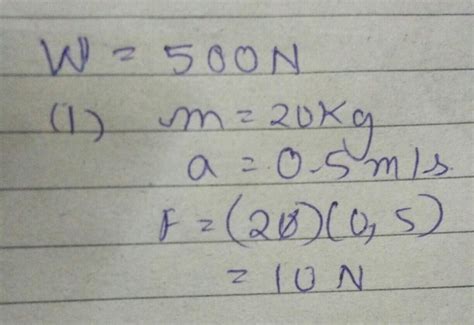 W = 500N
(1) m = 20Kg
a = 0.5m/s
F = (20)(0,5)
= 10 N